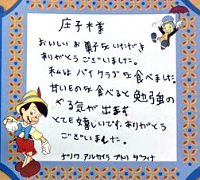 庄子様
おいしいお菓子をいただき
ありがとうございました。
私はバイクラブを食べました。
甘いものを食べると勉強の
やる気が出ます
とても嬉しいです。ありがとう
ございました。